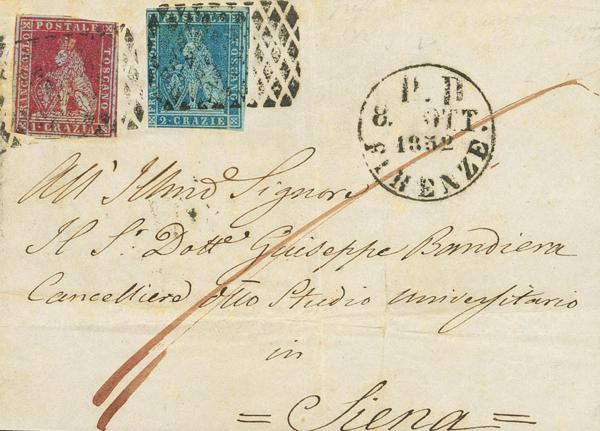 FRANCOBOLLO POSTALE TOSCANO
1·CRAZIE
FRANCOBOLLO POSTALE TOSCANO
2·CRAZIE
P. D
8. OTT
1852
FIRENZE.
All' Illmo Signore
Il Sr. Dotte Guiseppe Bandiera
Cancelliere Studio Universitario
in
= Siena =